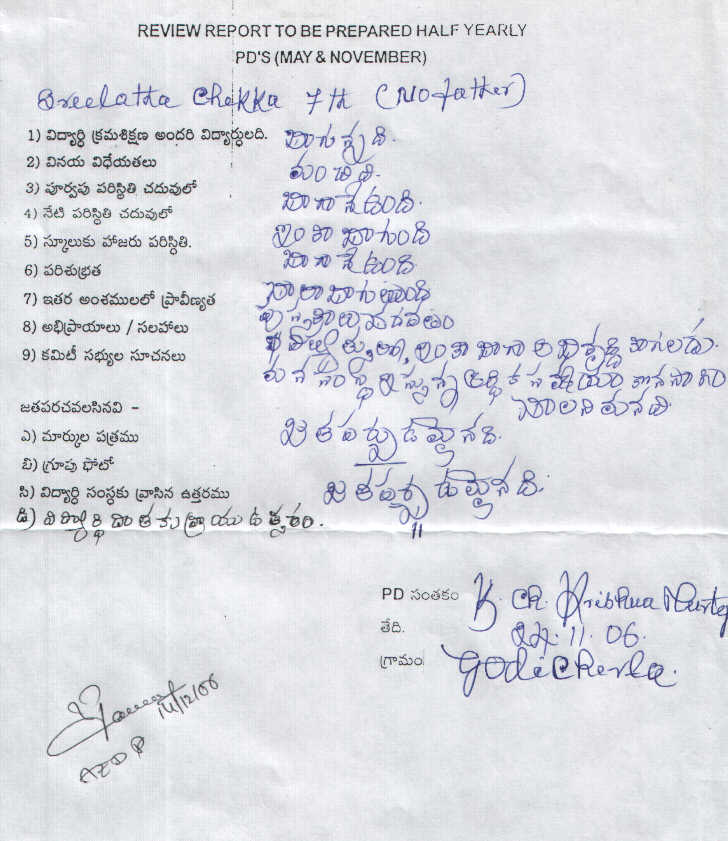 REVIEW REPORT TO BE PREPARED HALF YEARLY
PD'S (MAY & NOVEMBER)
Sreelatha Chekka 7th (No father)
1) విద్యార్థి క్రమశిక్షణ అందరి విద్యార్థులది. బాగున్నది.
2) వినయ విధేయతలు మంచిది.
3) పూర్వపు పరిస్థితి చదువులో బాగానే ఉంది.
4) నేటి పరిస్థితి చదువులో ఇంకా బాగుంది
5) స్కూలుకు హాజరు పరిస్థితి. బాగానే ఉంది
6) పరిశుభ్రత చాలా బాగుంటుంది
7) ఇతర అంశములలో ప్రావీణ్యత
8) అభిప్రాయాలు / సలహాలు ఇంకా బాగా అభివృద్ధి కాగలదు.
9) కమిటీ సభ్యుల సూచనలు మన సంస్థ
జతపరచవలసినవి -
ఎ) మార్కుల పత్రము జతపర్చుడమైనది.
బి) గ్రూపు ఫోటో
సి) విద్యార్థి సంస్థకు వ్రాసిన ఉత్తరము జతపర్చుడమైనది.
డి) విద్యార్థి దాతకు వ్రాయు ఉత్తరం. 11
PD సంతకం K. Ch. Krishna Murty
తేది. 24.11.06.
గ్రామం Godicherla.
14/12/06